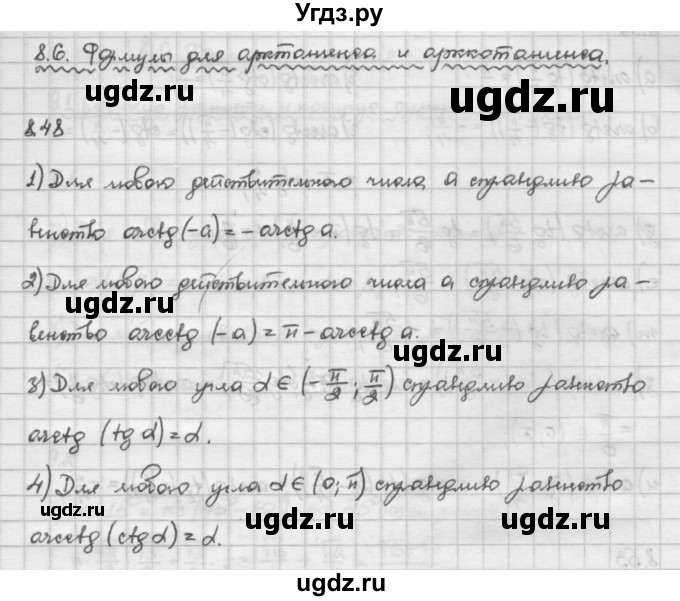 Угдз.ру
8.6. Формулы для арктангенса и арккотангенса.
ugdz.ru ugdz.ru
8.48
1) Для любого действительного числа a справедливо ра-
венство arctg(-a)=-arctg a.
ugdz.ru
2) Для любого действительного числа a справедливо ра-
ugdz.ru
венство arcctg (-a) = π - arcctg a.
ugdz.ru
3) Для любого угла α ∈ (-π/2; π/2) справедливо равенство
arctg (tg α) = α.
4) Для любого угла α ∈ (0; π) справедливо равенство
ugdz.ru ugdz.ru
arcctg (ctg α) = α.
ugdz.ru
ugdz.ru